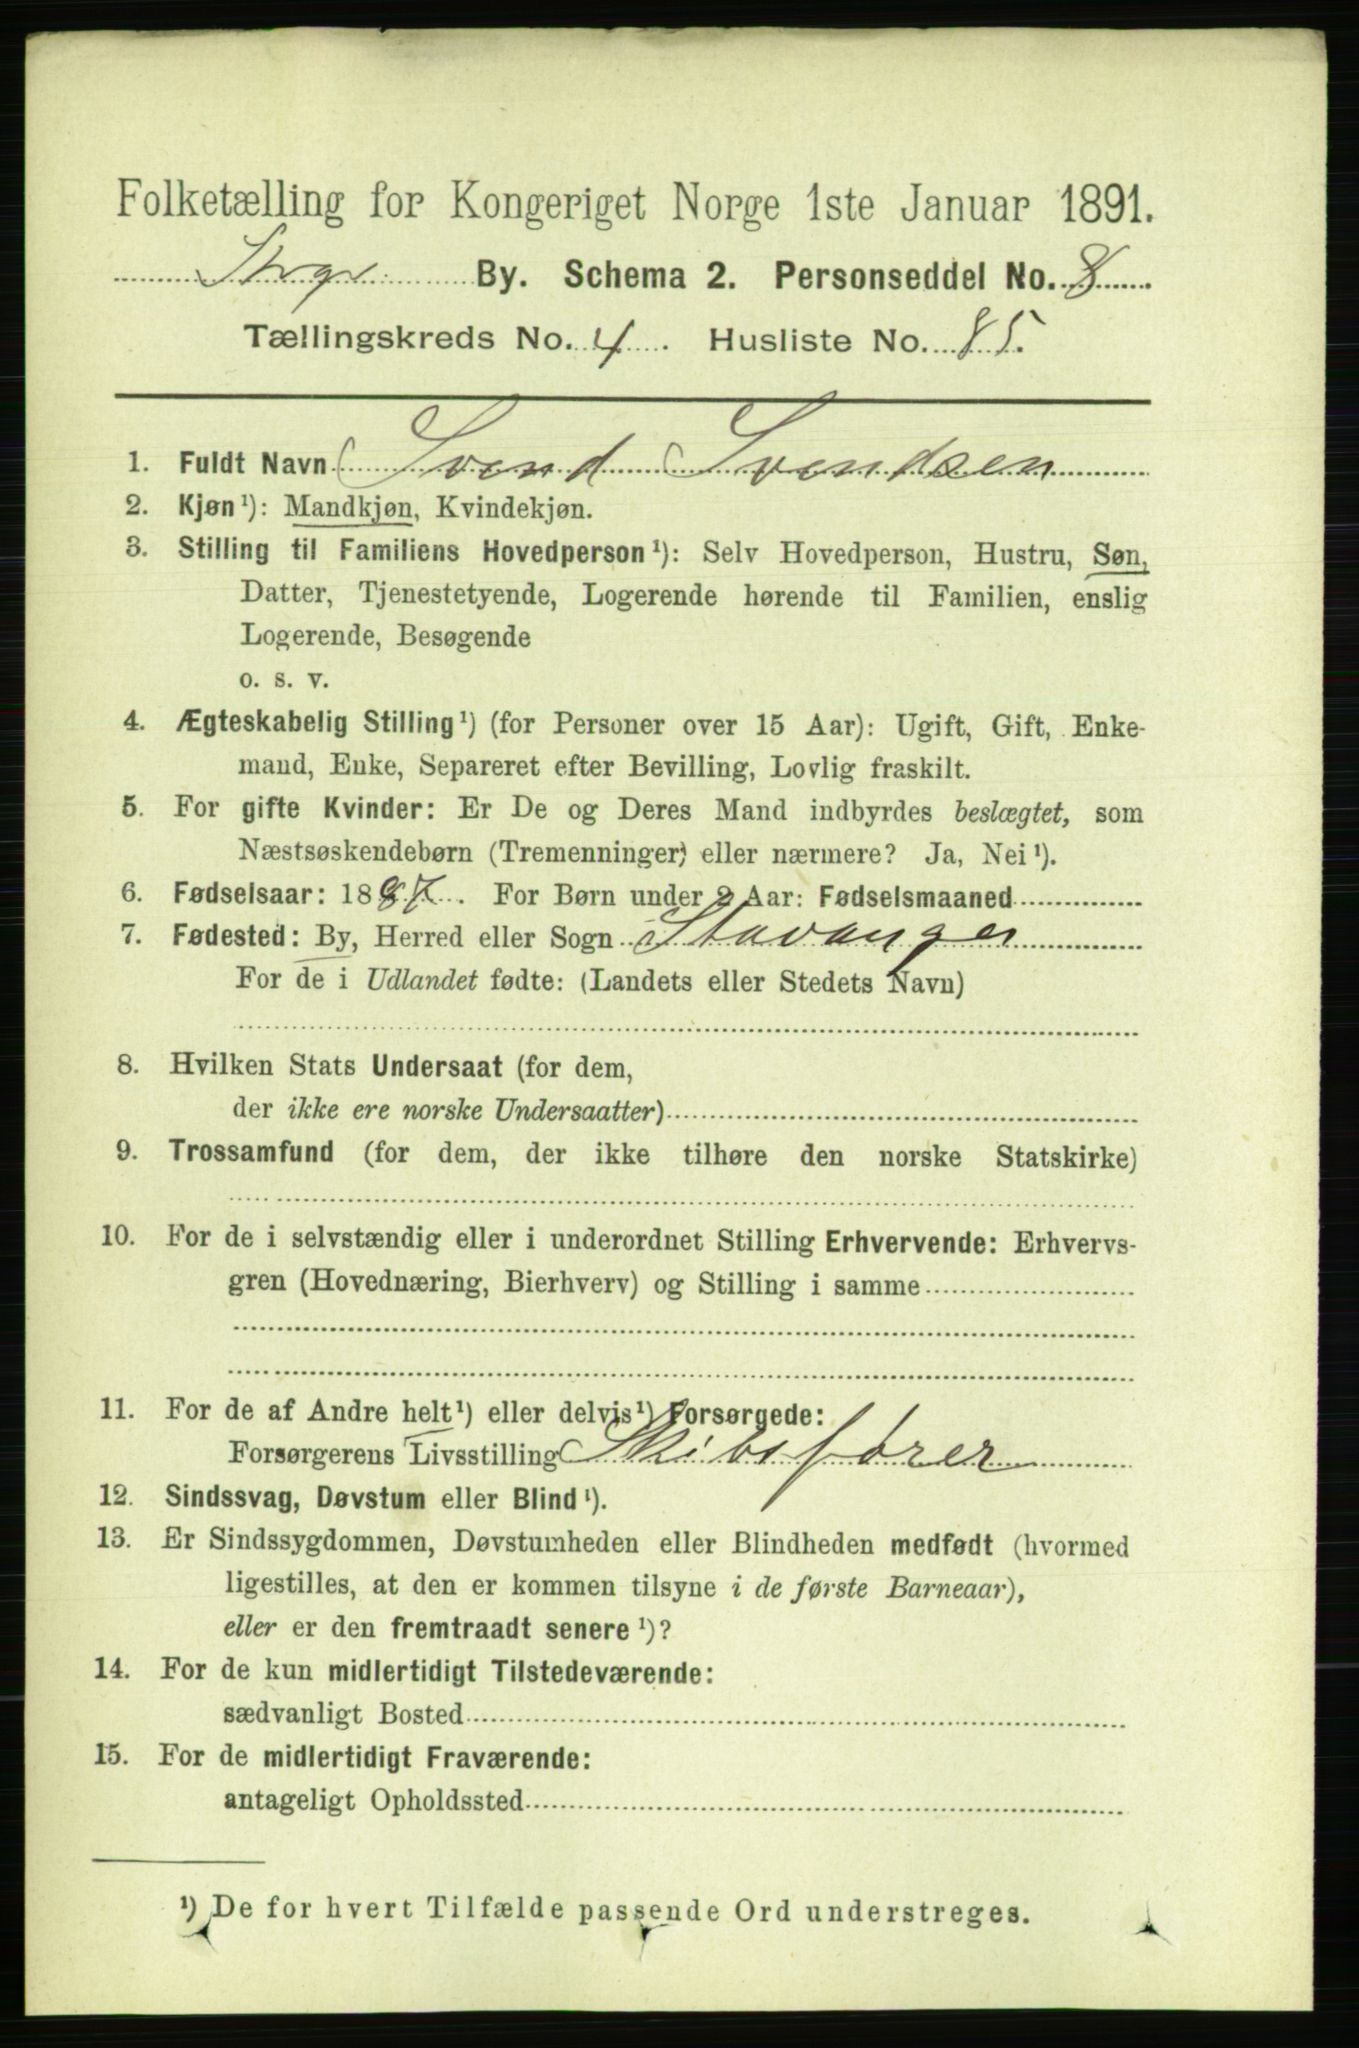 Folketælling for Kongeriget Norge 1ste Januar 1891.
Stvgr By. Schema 2. Personseddel No. 8
Tællingskreds No. 4. Husliste No. 85.
1. Fuldt Navn Svend Svendsen
2. Kjøn ¹): Mandkjøn, Kvindekjøn.
3. Stilling til Familiens Hovedperson ¹): Selv Hovedperson, Hustru, Søn,
Datter, Tjenestetyende, Logerende hørende til Familien, enslig
Logerende, Besøgende
o. s. v.
4. Ægteskabelig Stilling ¹) (for Personer over 15 Aar): Ugift, Gift, Enke-
mand, Enke, Separeret efter Bevilling, Lovlig fraskilt.
5. For gifte Kvinder: Er De og Deres Mand indbyrdes beslægtet, som
Næstsøskendebørn (Tremenninger) eller nærmere? Ja, Nei ¹).
6. Fødselsaar: 1887. For Børn under 2 Aar: Fødselsmaaned
7. Fødested: By, Herred eller Sogn Stavanger
For de i Udlandet fødte: (Landets eller Stedets Navn)
8. Hvilken Stats Undersaat (for dem,
der ikke ere norske Undersaatter)
9. Trossamfund (for dem, der ikke tilhøre den norske Statskirke)
10. For de i selvstændig eller i underordnet Stilling Erhvervende: Erhvervs-
gren (Hovednæring, Bierhverv) og Stilling i samme
11. For de af Andre helt ¹) eller delvis ¹) Forsørgede:
Forsørgerens Livsstilling Skibsfører
12. Sindssvag, Døvstum eller Blind ¹).
13. Er Sindssygdommen, Døvstumheden eller Blindheden medfødt (hvormed
ligestilles, at den er kommen tilsyne i de første Barneaar),
eller er den fremtraadt senere ¹)?
14. For de kun midlertidigt Tilstedeværende:
sædvanligt Bosted
15. For de midlertidigt Fraværende:
antageligt Opholdssted
¹) De for hvert Tilfælde passende Ord understreges.